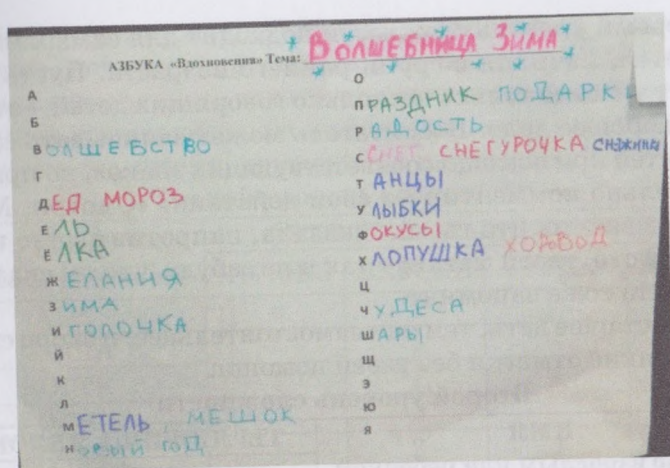 АЗБУКА «Вдохновения» Тема: ВОЛШЕБНИЦА ЗИМА
А
Б
ВОЛШЕБСТВО
Г
ДЕД МОРОЗ
ЕЛЬ
ЁЛКА
ЖЕЛАНИЯ
ЗИМА
ИГОЛОЧКА
Й
К
Л
МЕТЕЛЬ МЕШОК
НОВЫЙ ГОД
О
ПРАЗДНИК ПОДАРКИ
РАДОСТЬ
СНЕГ СНЕГУРОЧКА СНЕЖИНКИ
ТАНЦЫ
УЛЫБКИ
ФОКУСЫ
ХЛОПУШКА ХОРОВОД
Ц
ЧУДЕСА
ШАРЫ
Щ
Э
Ю
Я